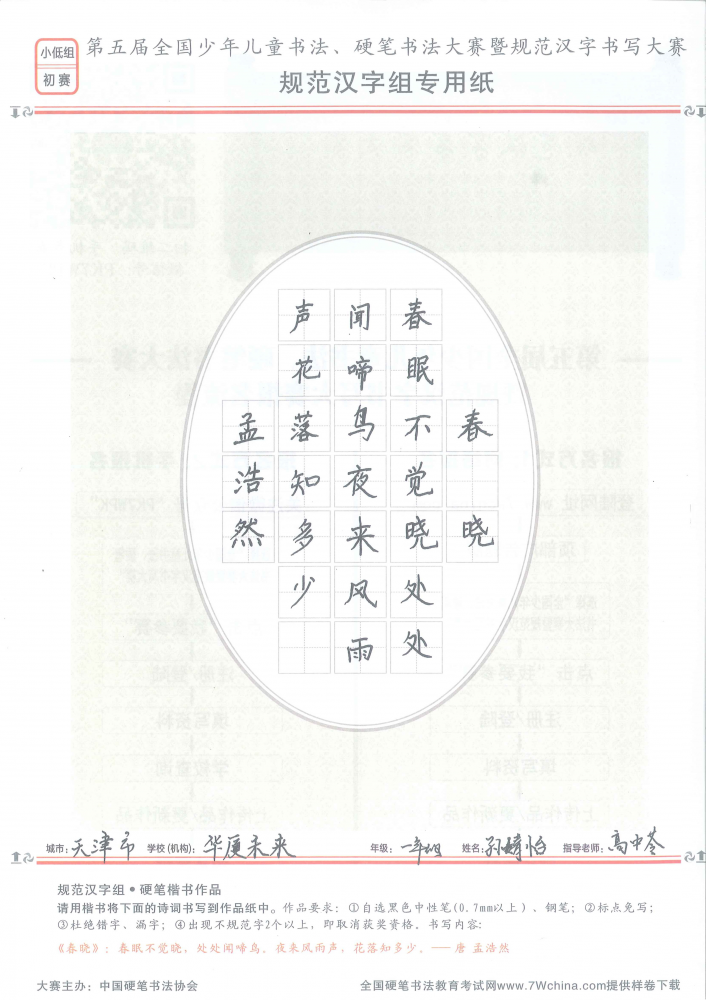 小低组
初赛
第五届全国少年儿童书法、硬笔书法大赛暨规范汉字书写大赛
规范汉字组专用纸
春晓
春眠不觉晓处处
闻啼鸟夜来风雨
声花落知多少
孟浩然
城市：天津市 学校(机构)：华厦未来 年级：一年组 姓名：孙怡 指导老师：高中苓
规范汉字组•硬笔楷书作品
请用楷书将下面的诗词书写到作品纸中。作品要求：①自选黑色中性笔(0.7mm以上)、钢笔；②标点免写；
③杜绝错字、漏字；④出现不规范字2个以上，即取消获奖资格。书写内容：
《春晓》：春眠不觉晓，处处闻啼鸟。夜来风雨声，花落知多少。——唐 孟浩然
大赛主办：中国硬笔书法协会 全国硬笔书法教育考试网www.7Wchina.com提供样卷下载